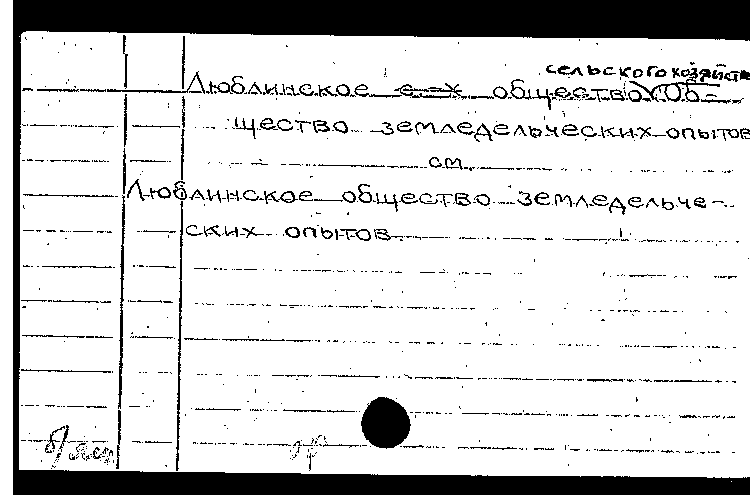 сельского хозяйств
Люблинское с-х общество Об-
щество земледельческих опытов
см.
Люблинское общество земледельче-
ских опытов.